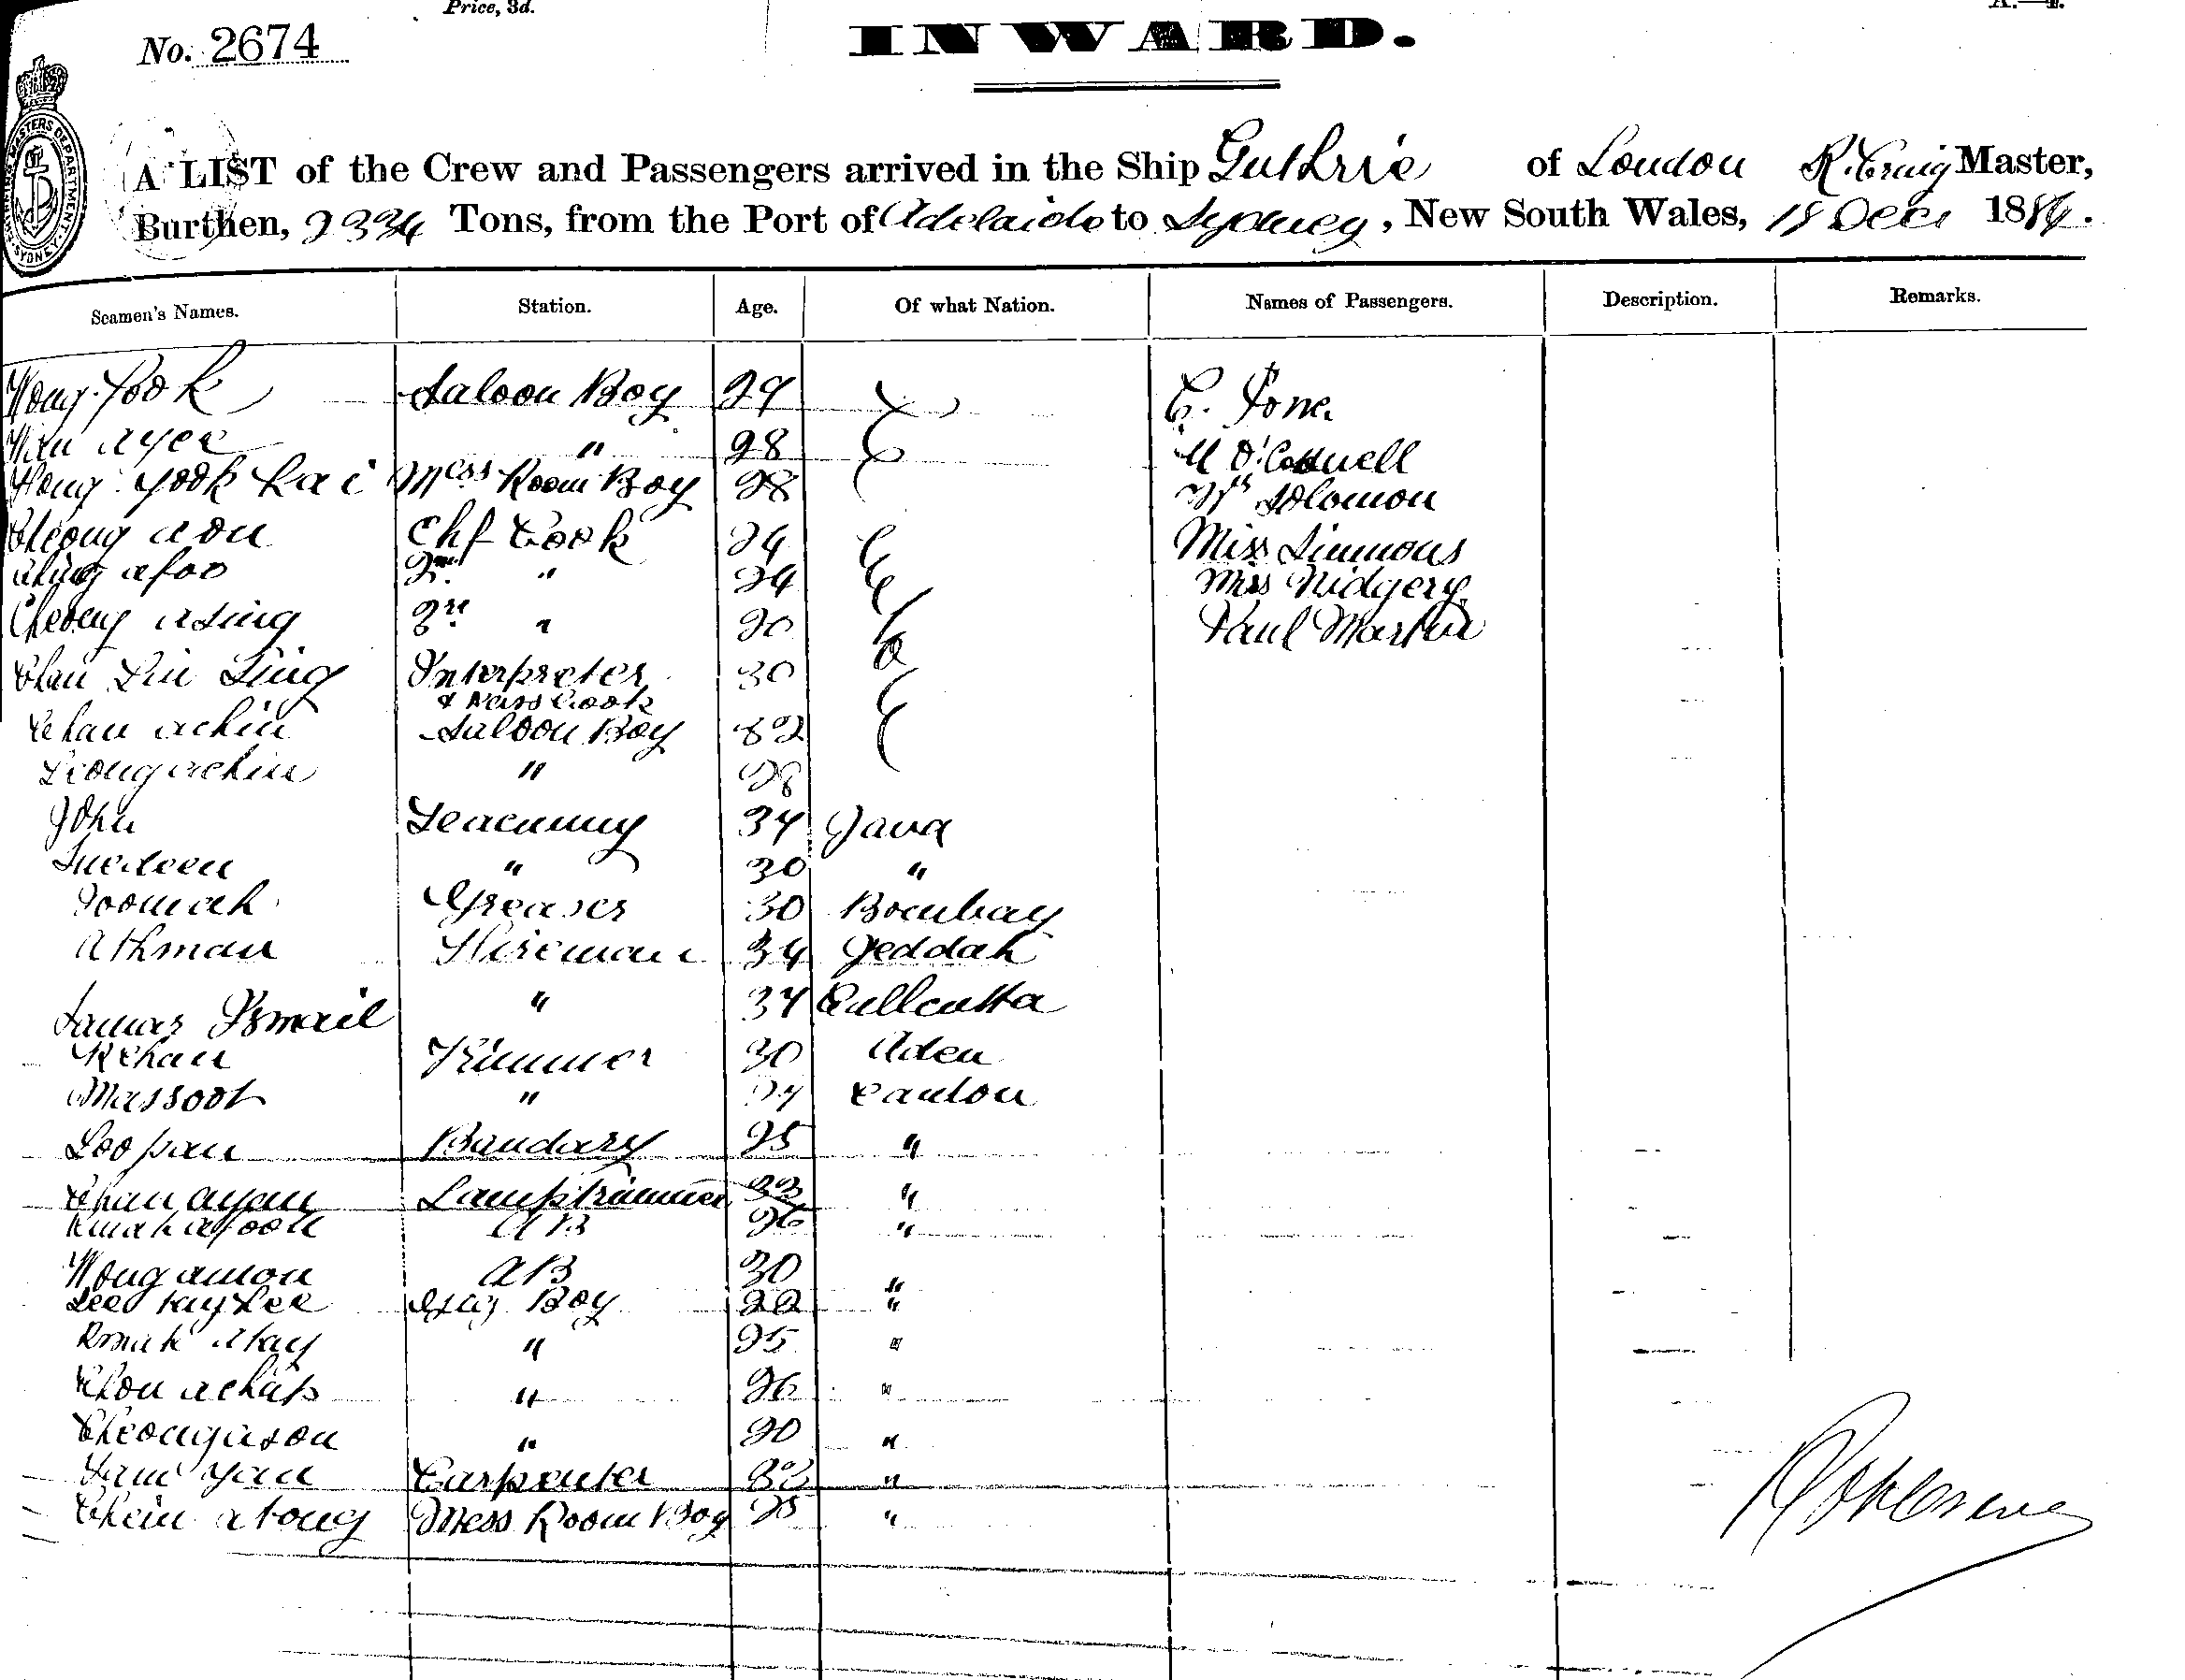 Price, 3d.
No. 2674
INWARD.
A LIST of the Crew and Passengers arrived in the Ship Guthrie of London R. Craig Master,
Burthen, 2334 Tons, from the Port of Adelaide to Sydney, New South Wales, 18 Decr 1886.
Seamen's Names. Station. Age. Of what Nation. Names of Passengers. Description. Remarks.
Wong Fook Saloon Boy 24
ayee " 28 O'Connell
Hong Yook Kai Mess Room Boy 28 Mrs Solomon
Cheong aon Chf Cook 24 Miss Simmons
afoo 2nd " 24 Miss Nidgery
Cheong asing 3rd " 20 Paul Martin
Chan Lin Sing Interpreter 30
& Pass Cook
Chan achin Saloon Boy 32
Leong achin " 28
John Seacunny 34 Java
" 30 "
Joomah Greaser 30 Bombay
Athman Fireman 34 Jeddah
Ismail " 34 Cullcutta
Rehan Trimmer 30 Aden
Massoot " 24 Canton
Loo pan Bandary 25 "
Chan ayan Lamptrimmer 33 "
AB 26 "
Wong amon AB 30 "
Lee Kay Lee Boy 22 "
akay " 25 "
Chon achap " 26 "
Cheong ason " 20 "
Sam Yan Carpenter 32 "
Chein atong Mess Room Boy 25 "